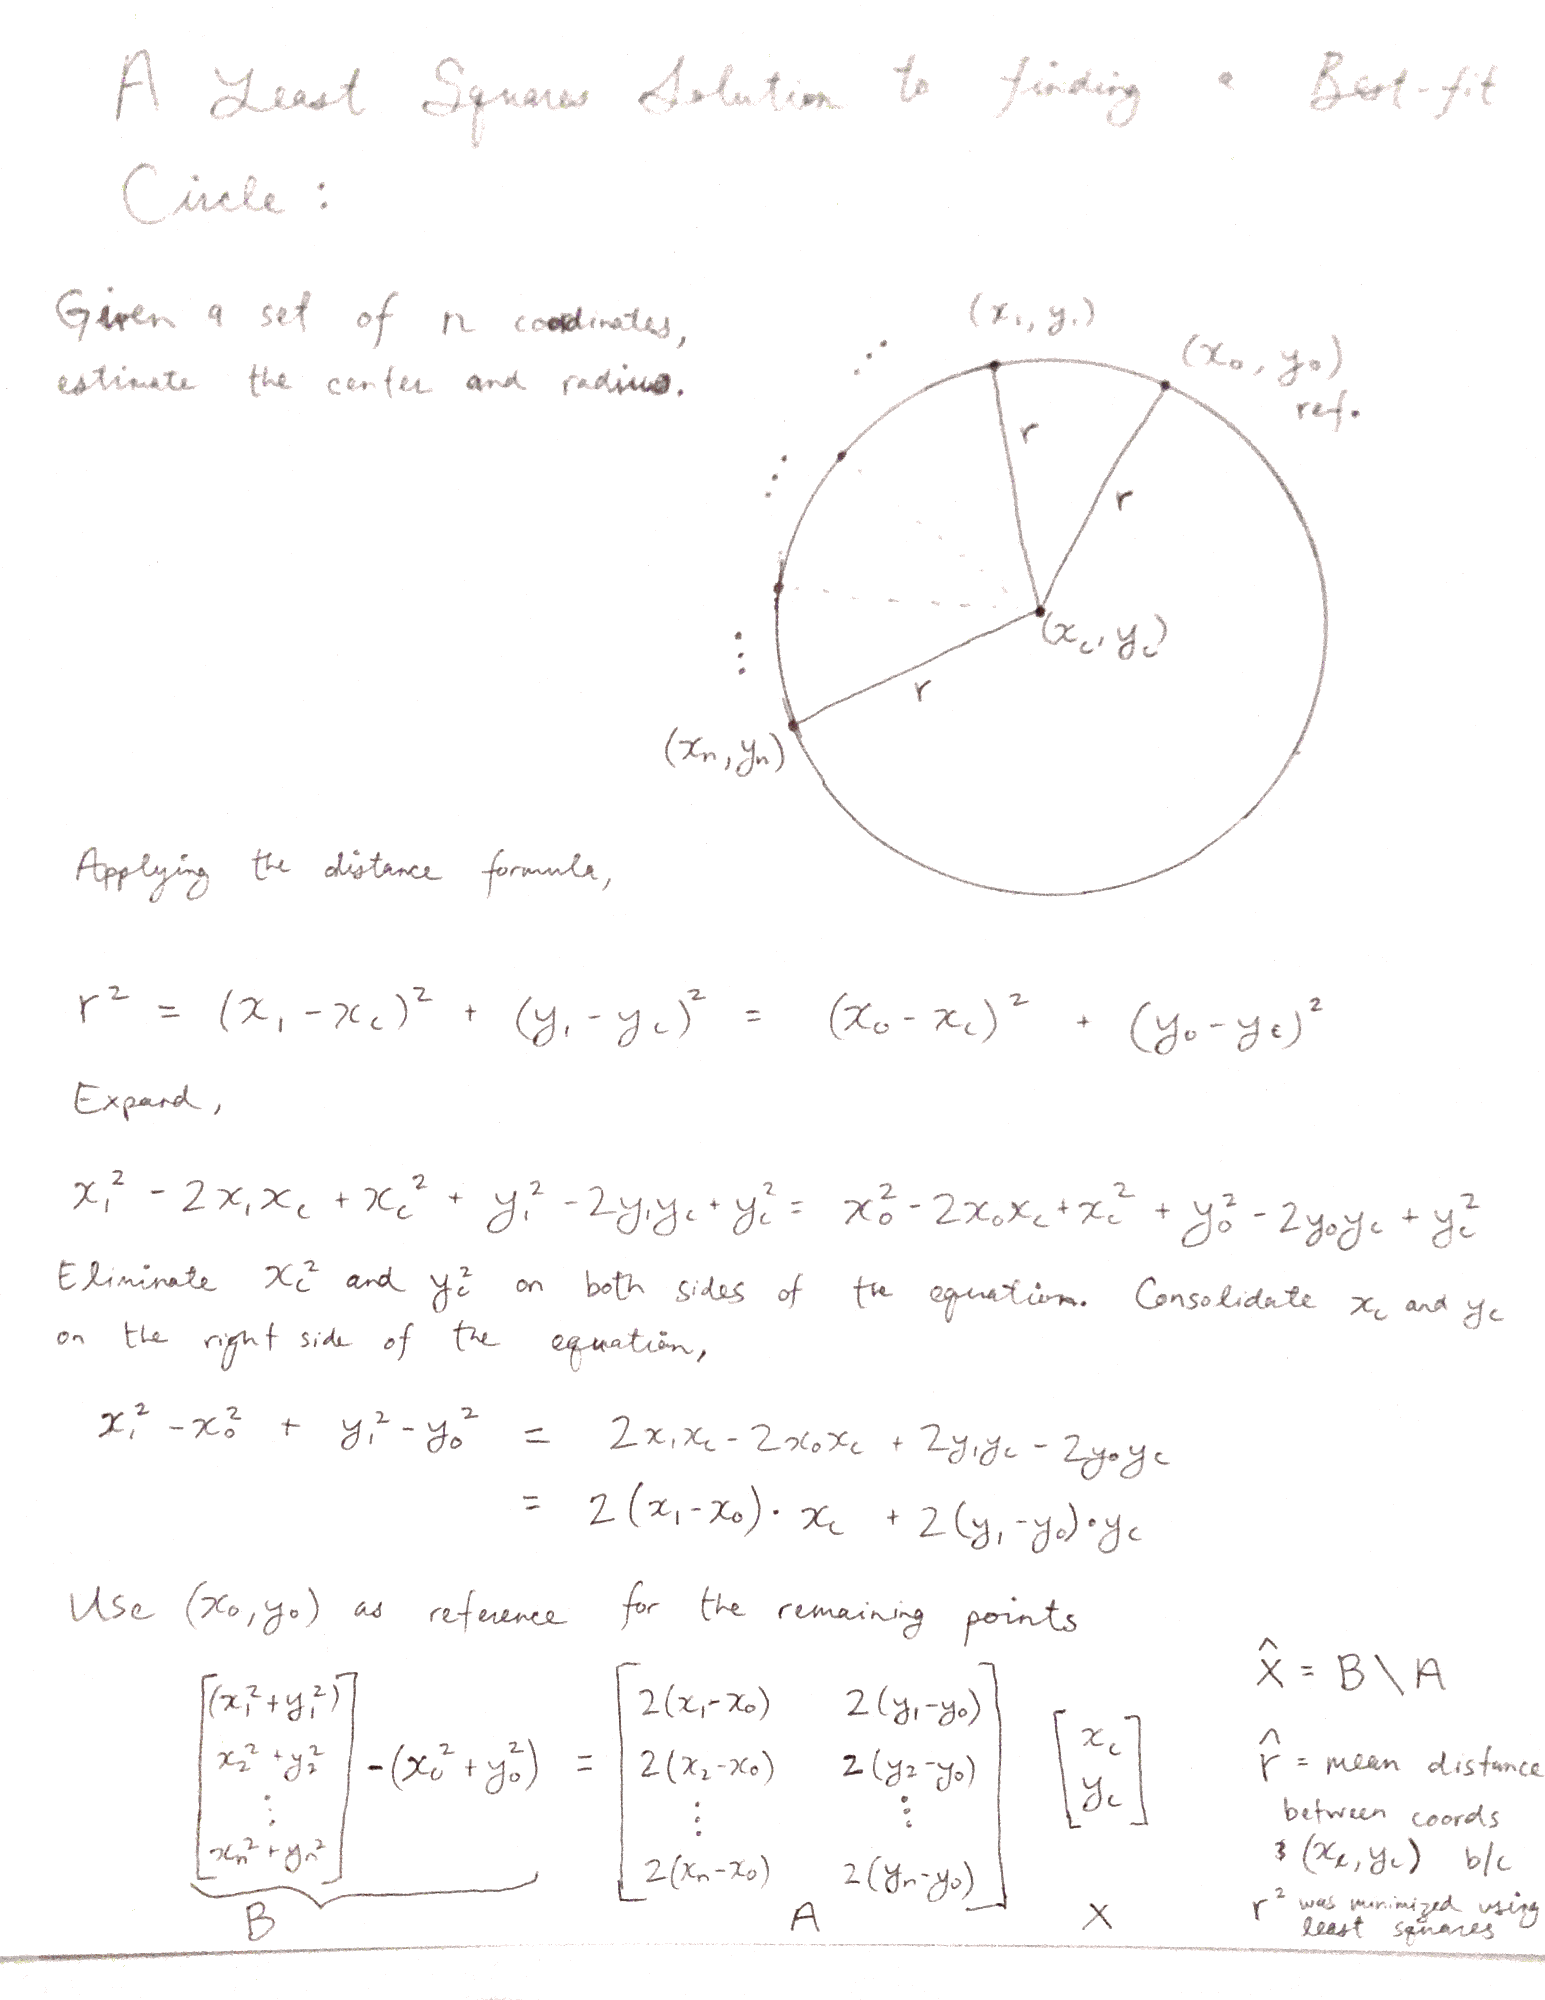 A Least Squares Solution to finding a Best-fit
Circle :
Given a set of n coordinates,
estimate the center and radius.
(x₁, y₁)
(x₀, y₀)
ref.
r
r
(x_c, y_c)
r
(xₙ, yₙ)
Applying the distance formula,
r² = (x₁ - x_c)² + (y₁ - y_c)² = (x₀ - x_c)² + (y₀ - y_c)²
Expand,
x₁² - 2x₁x_c + x_c² + y₁² - 2y₁y_c + y_c² = x₀² - 2x₀x_c + x_c² + y₀² - 2y₀y_c + y_c²
Eliminate x_c² and y_c² on both sides of the equation. Consolidate x_c and y_c
on the right side of the equation,
x₁² - x₀² + y₁² - y₀² = 2x₁x_c - 2x₀x_c + 2y₁y_c - 2y₀y_c
= 2(x₁ - x₀)·x_c + 2(y₁ - y₀)·y_c
Use (x₀, y₀) as reference for the remaining points
[(x₁² + y₁²)
x₂² + y₂²
⋮
xₙ² + yₙ²] - (x₀² + y₀²) =
[2(x₁ - x₀) 2(y₁ - y₀)
2(x₂ - x₀) 2(y₂ - y₀)
⋮ ⋮
2(xₙ - x₀) 2(yₙ - y₀)]
[x_c
y_c]
B
A
X
X̂ = B \ A
r̂ = mean distance
between coords
& (x_c, y_c) b/c
r² was minimized using
least squares